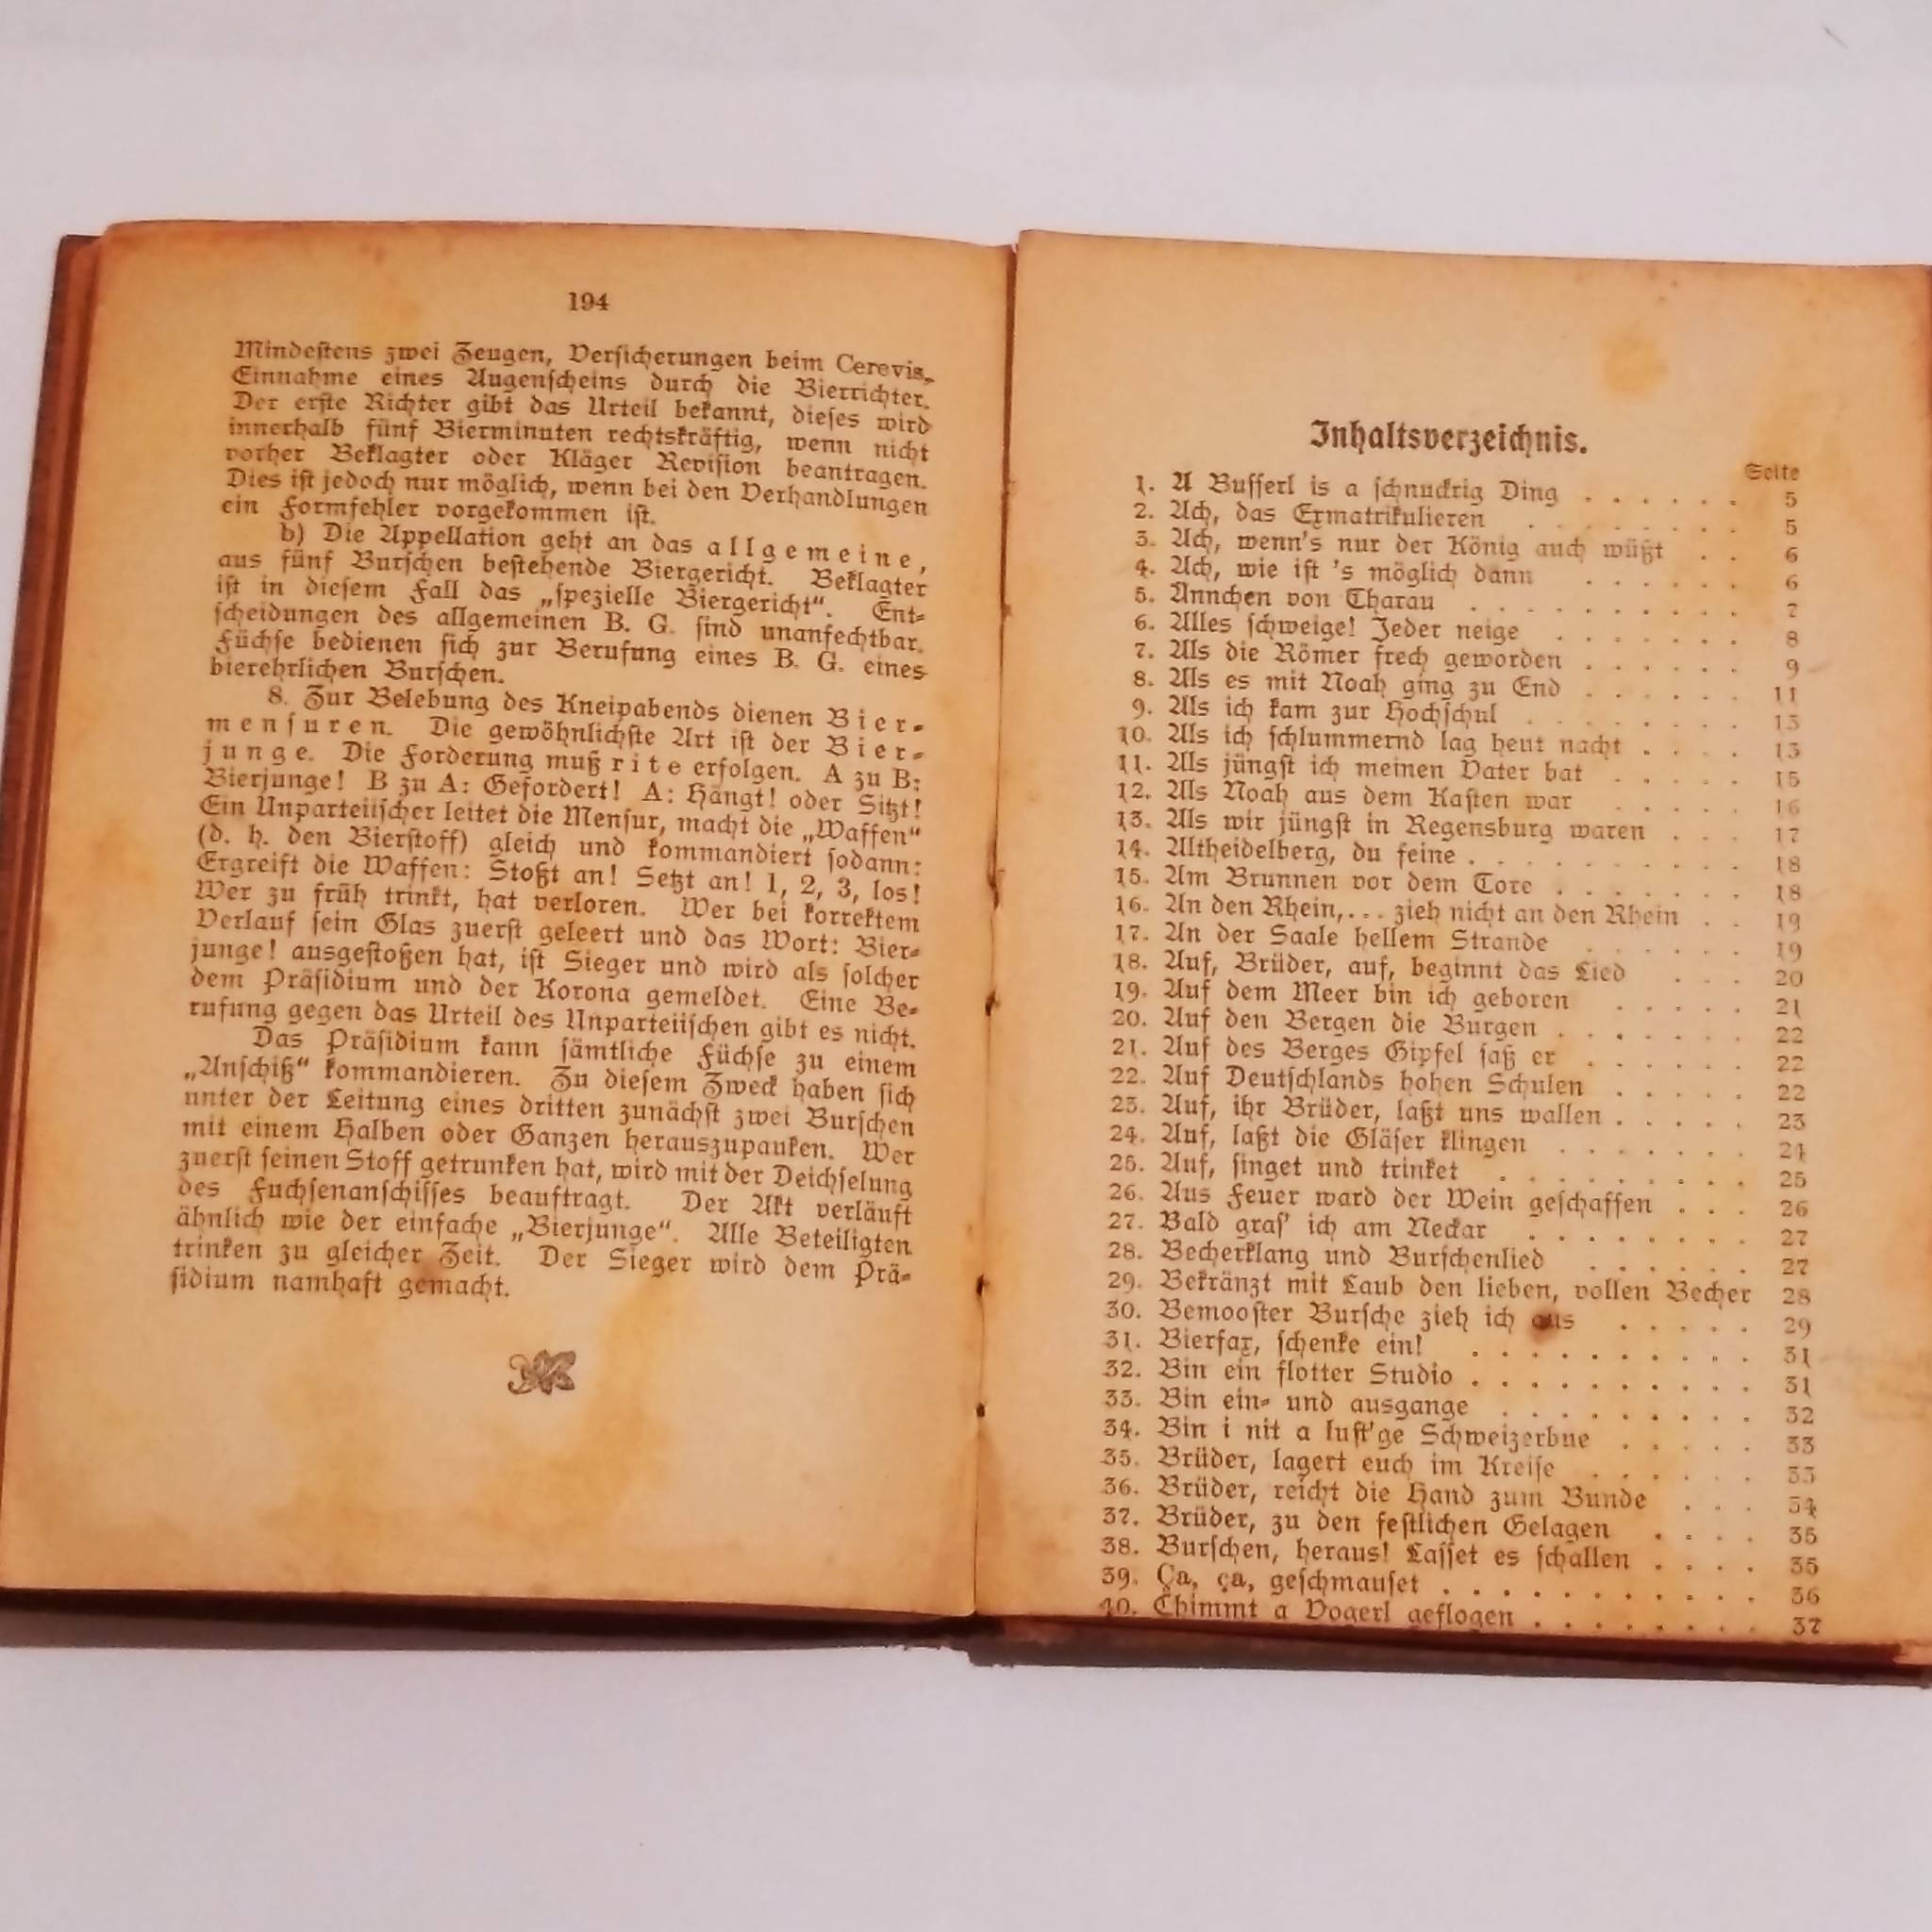 194
Mindestens zwei Zeugen, Versicherungen beim Cerevis,
Einnahme eines Augenscheins durch die Bierrichter.
Der erste Richter gibt das Urteil bekannt, dieses wird
innerhalb fünf Bierminuten rechtskräftig, wenn nicht
vorher Beklagter oder Kläger Revision beantragen.
Dies ist jedoch nur möglich, wenn bei den Verhandlungen
ein Formfehler vorgekommen ist.
b) Die Appellation geht an das allgemeine,
aus fünf Burschen bestehende Biergericht. Beklagter
ist in diesem Fall das „spezielle Biergericht“. Ent-
scheidungen des allgemeinen B. G. sind unanfechtbar.
Füchse bedienen sich zur Berufung eines B. G. eines
bierehrlichen Burschen.
8. Zur Belebung des Kneipabends dienen Bier-
mensuren. Die gewöhnlichste Art ist der Bier-
junge. Die Forderung muß rite erfolgen. A zu B:
Bierjunge! B zu A: Gefordert! A: Hängt! oder Sitzt!
Ein Unparteiischer leitet die Mensur, macht die „Waffen“
(d. h. den Bierstoff) gleich und kommandiert sodann:
Ergreift die Waffen: Stoßt an! Setzt an! 1, 2, 3, los!
Wer zu früh trinkt, hat verloren. Wer bei korrektem
Verlauf sein Glas zuerst geleert und das Wort: Bier-
junge! ausgestoßen hat, ist Sieger und wird als solcher
dem Präsidium und der Korona gemeldet. Eine Be-
rufung gegen das Urteil des Unparteiischen gibt es nicht.
Das Präsidium kann sämtliche Füchse zu einem
„Anschiß“ kommandieren. Zu diesem Zweck haben sich
unter der Leitung eines dritten zunächst zwei Burschen
mit einem Halben oder Ganzen herauszupauken. Wer
zuerst seinen Stoff getrunken hat, wird mit der Deichselung
des Fuchsenanschisses beauftragt. Der Akt verläuft
ähnlich wie der einfache „Bierjunge“. Alle Beteiligten
trinken zu gleicher Zeit. Der Sieger wird dem Prä-
sidium namhaft gemacht.
Inhaltsverzeichnis.
Seite
1. A Busserl is a schnuckrig Ding . . . . . . 5
2. Ach, das Exmatrikulieren . . . . . . . 5
3. Ach, wenn's nur der König auch wüßt . . 6
4. Ach, wie ist 's möglich dann . . . . . . 6
5. Ännchen von Tharau . . . . . . . . . 7
6. Alles schweige! Jeder neige . . . . . . 8
7. Als die Römer frech geworden . . . . . . 9
8. Als es mit Noah ging zu End . . . . . . 11
9. Als ich kam zur Hochschul . . . . . . . 13
10. Als ich schlummernd lag heut nacht . . . . 13
11. Als jüngst ich meinen Vater bat . . . . . 15
12. Als Noah aus dem Kasten war . . . . . 16
13. Als wir jüngst in Regensburg waren . . . 17
14. Altheidelberg, du feine . . . . . . . . . 18
15. Am Brunnen vor dem Tore . . . . . . . 18
16. An den Rhein,... zieh nicht an den Rhein . . 19
17. An der Saale hellem Strande . . . . . . 19
18. Auf, Brüder, auf, beginnt das Lied . . . 20
19. Auf dem Meer bin ich geboren . . . . . 21
20. Auf den Bergen die Burgen . . . . . . . 22
21. Auf des Berges Gipfel saß er . . . . . . 22
22. Auf Deutschlands hohen Schulen . . . . . 22
23. Auf, ihr Brüder, laßt uns wallen . . . . . 23
24. Auf, laßt die Gläser klingen . . . . . . . 24
25. Auf, singet und trinket . . . . . . . . . 25
26. Aus Feuer ward der Wein geschaffen . . . 26
27. Bald gras' ich am Neckar . . . . . . . . 27
28. Becherklang und Burschenlied . . . . . . 27
29. Bekränzt mit Laub den lieben, vollen Becher 28
30. Bemooster Bursche zieh ich aus . . . . . 29
31. Bierfax, schenke ein! . . . . . . . . . . 31
32. Bin ein flotter Studio . . . . . . . . . . 31
33. Bin ein- und ausgange . . . . . . . . . 32
34. Bin i nit a lust'ge Schweizerbue . . . . . 33
35. Brüder, lagert euch im Kreise . . . . . . 33
36. Brüder, reicht die Hand zum Bunde . . . 34
37. Brüder, zu den festlichen Gelagen . . . . 35
38. Burschen, heraus! Lasset es schallen . . . . 35
39. Ça, ça, geschmauset . . . . . . . . . . . 36
40. Chimmt a Vogerl geflogen . . . . . . . . 37